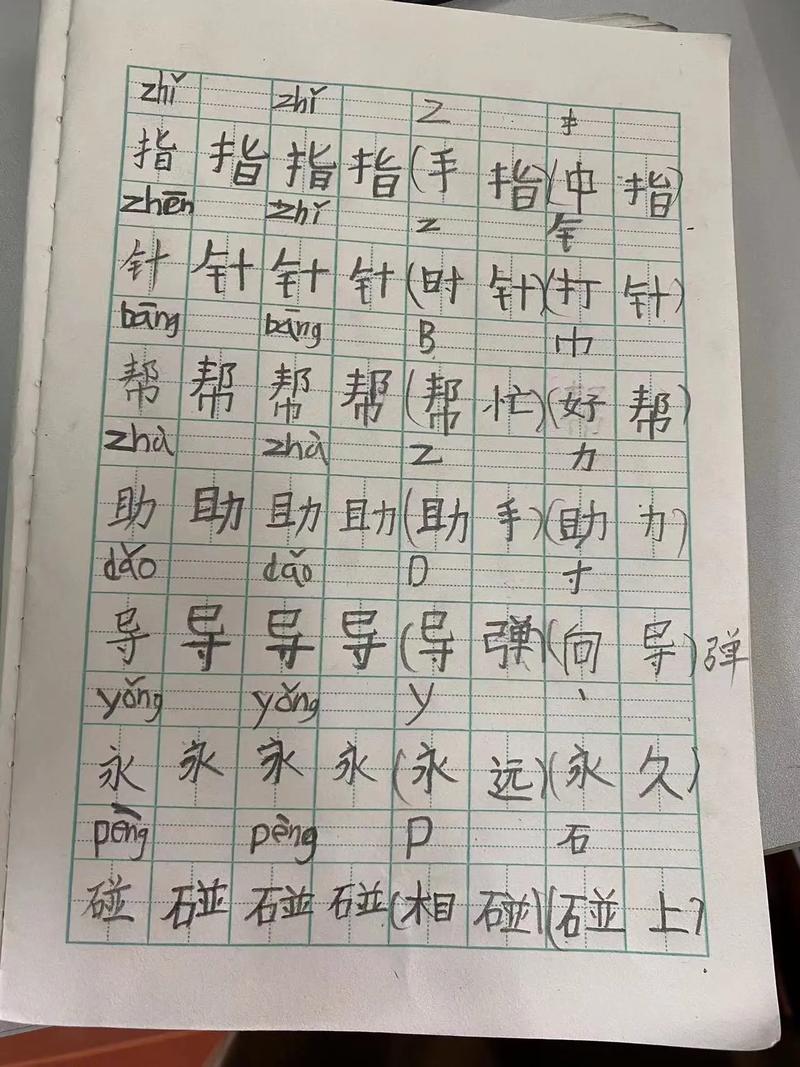 zhǐ zhǐ Z 扌
指 指 指 指 (手 指) (中 指)
zhēn zhǐ z 钅
针 针 针 针 (时 针) (打 针)
bāng bāng B 巾
帮 帮 帮 帮 (帮 忙) (好 帮)
zhà zhà Z 力
助 助 助 助 (助 手) (助 力)
dǎo dǎo D 寸
导 导 导 导 (导 弹) (向 导) 弹
yǒng yǒng Y 丶
永 永 永 永 (永 远) (永 久)
pèng pèng P 石
碰 碰 碰 碰 (相 碰) (碰 上)